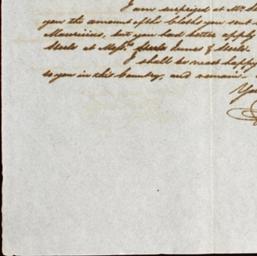 I am surprized at Mr.
you the amount of the Cloths you sent
Mauritius, but you had better apply
Steele at Messrs. Steele Innes & Steele.
I shall be most happy
to you in this Country, and remain
You